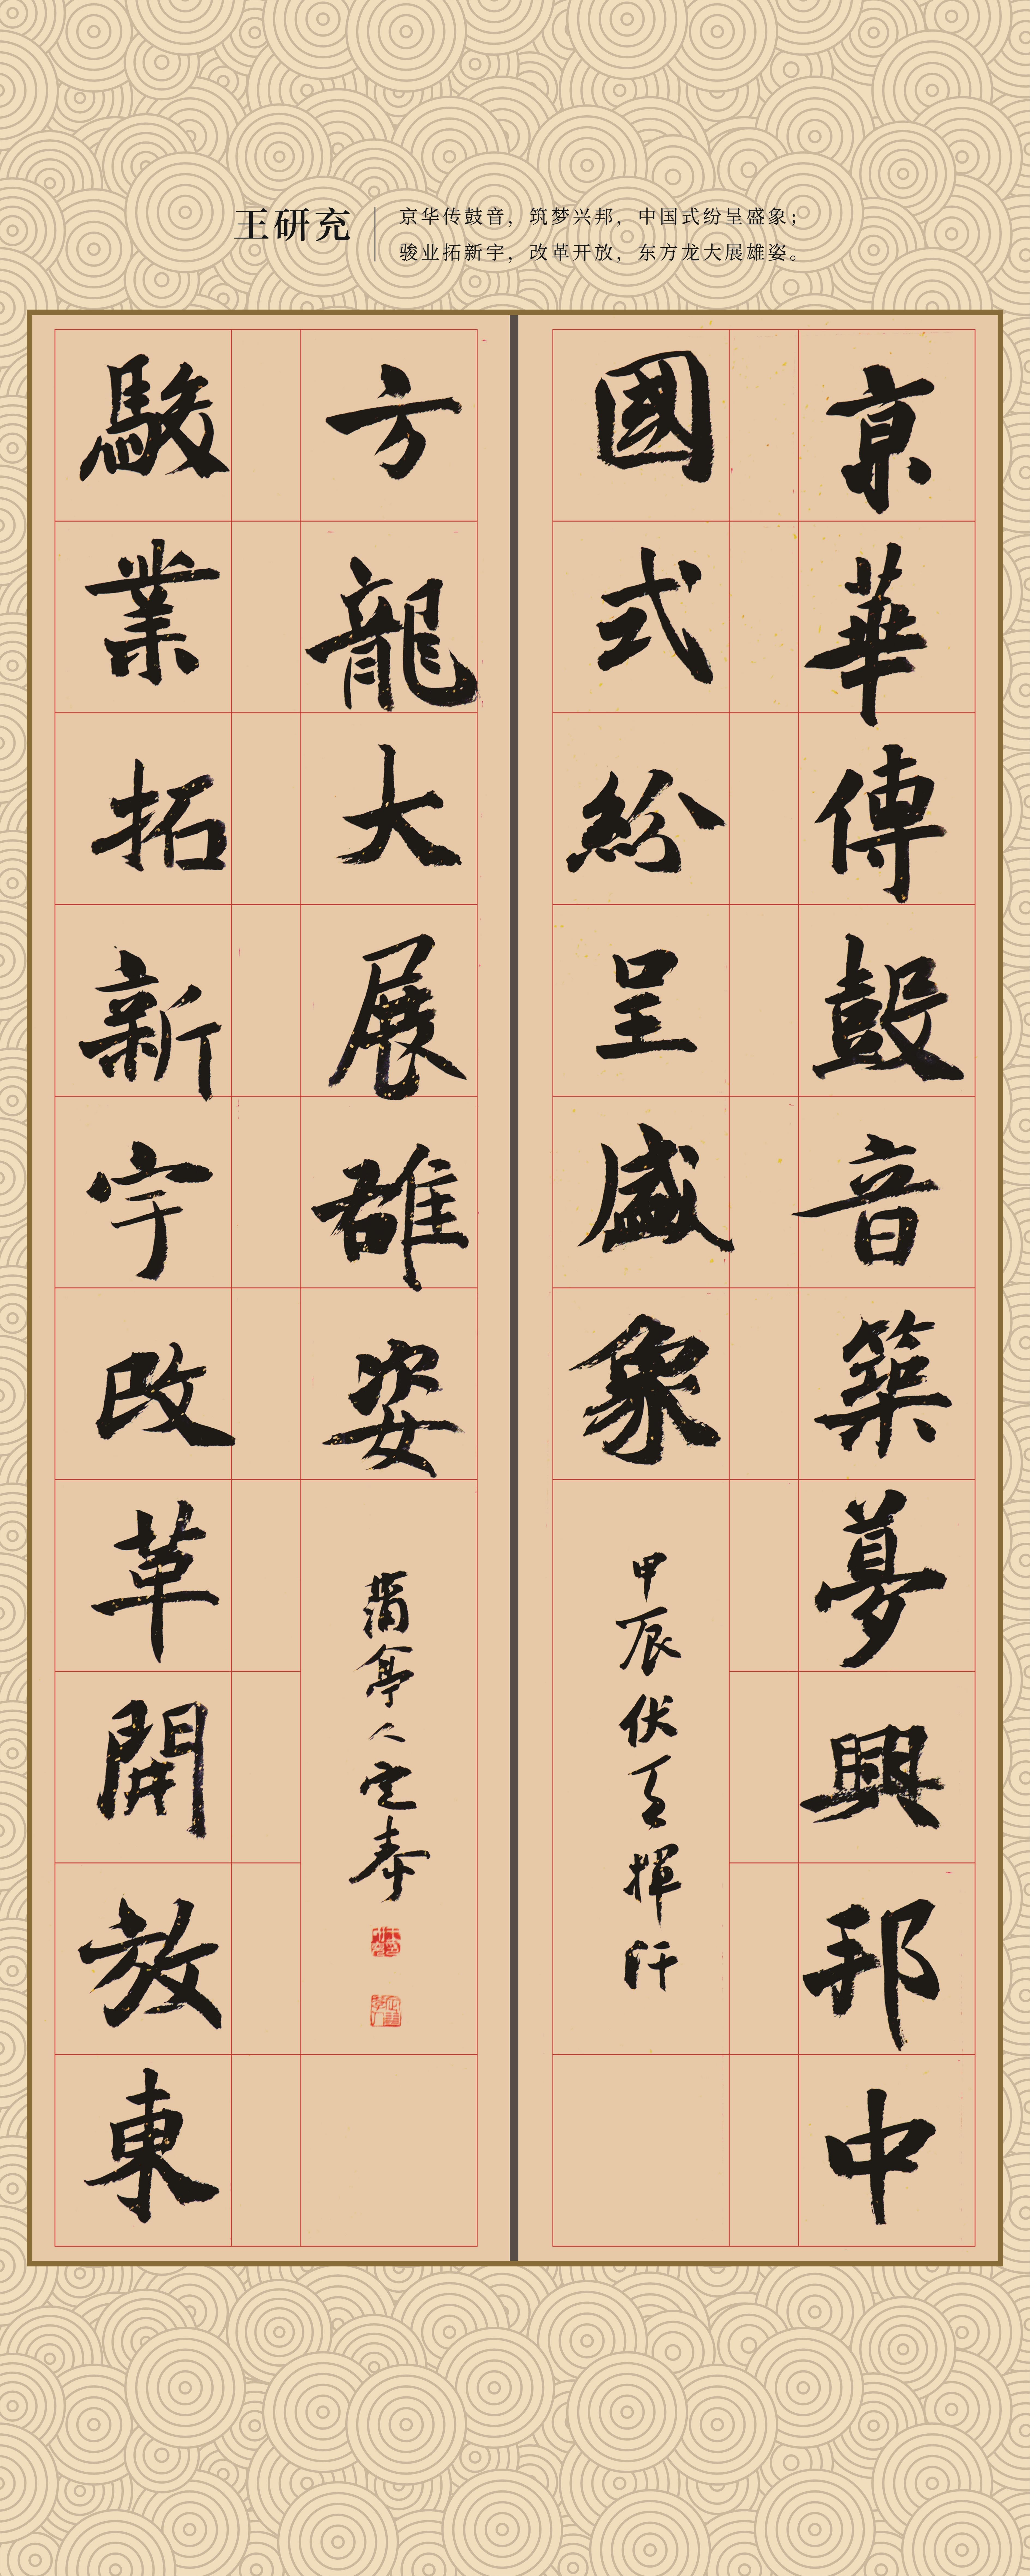 王研充
京华传鼓音，筑梦兴邦，中国式纷呈盛象；
骏业拓新宇，改革开放，东方龙大展雄姿。
京華傳鼓音築夢興邦中
國式紛呈盛象
甲辰伏天揮汗
駿業拓新宇改革開放東
方龍大展雄姿
蒲亭人定奉